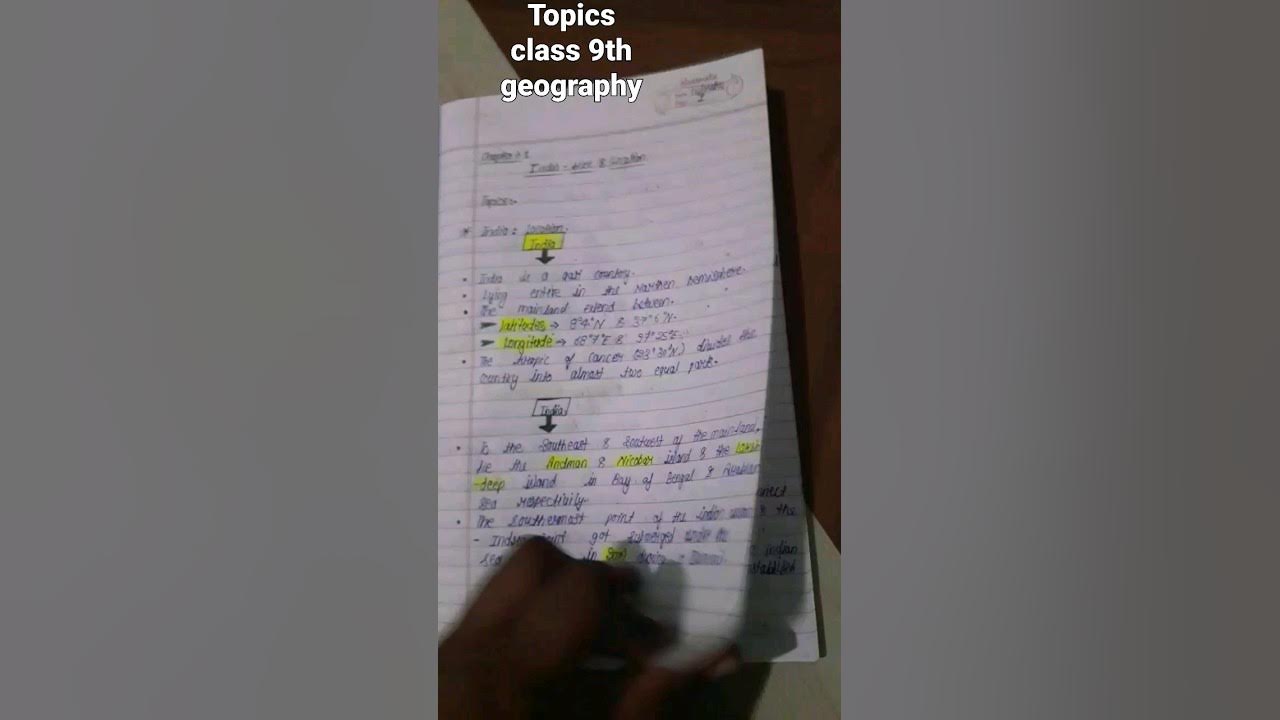 Topics
class 9th
geography
Chapter : 1
India - size & Location
Topics :-
* India : Location.
India
• India is a vast country.
• Lying entire in the Northen hemisphere.
• The mainland extend between.
➤ latitudes → 8°4'N & 37°6'N.
➤ Longitude → 68°7'E & 97°25'E.
• The tropic of cancer (23°30'N) divides the
country into almost two equal parts.
India
• To the Southeast & Southwest of the mainland,
lie the Andman & Nicobar island & the Laksh
-deep island in Bay of Bengal & Arabian
Sea respectivily.
• The Southernmost point of the Indian union & the
- Indira point got submerged under the
Sea in 2004 during